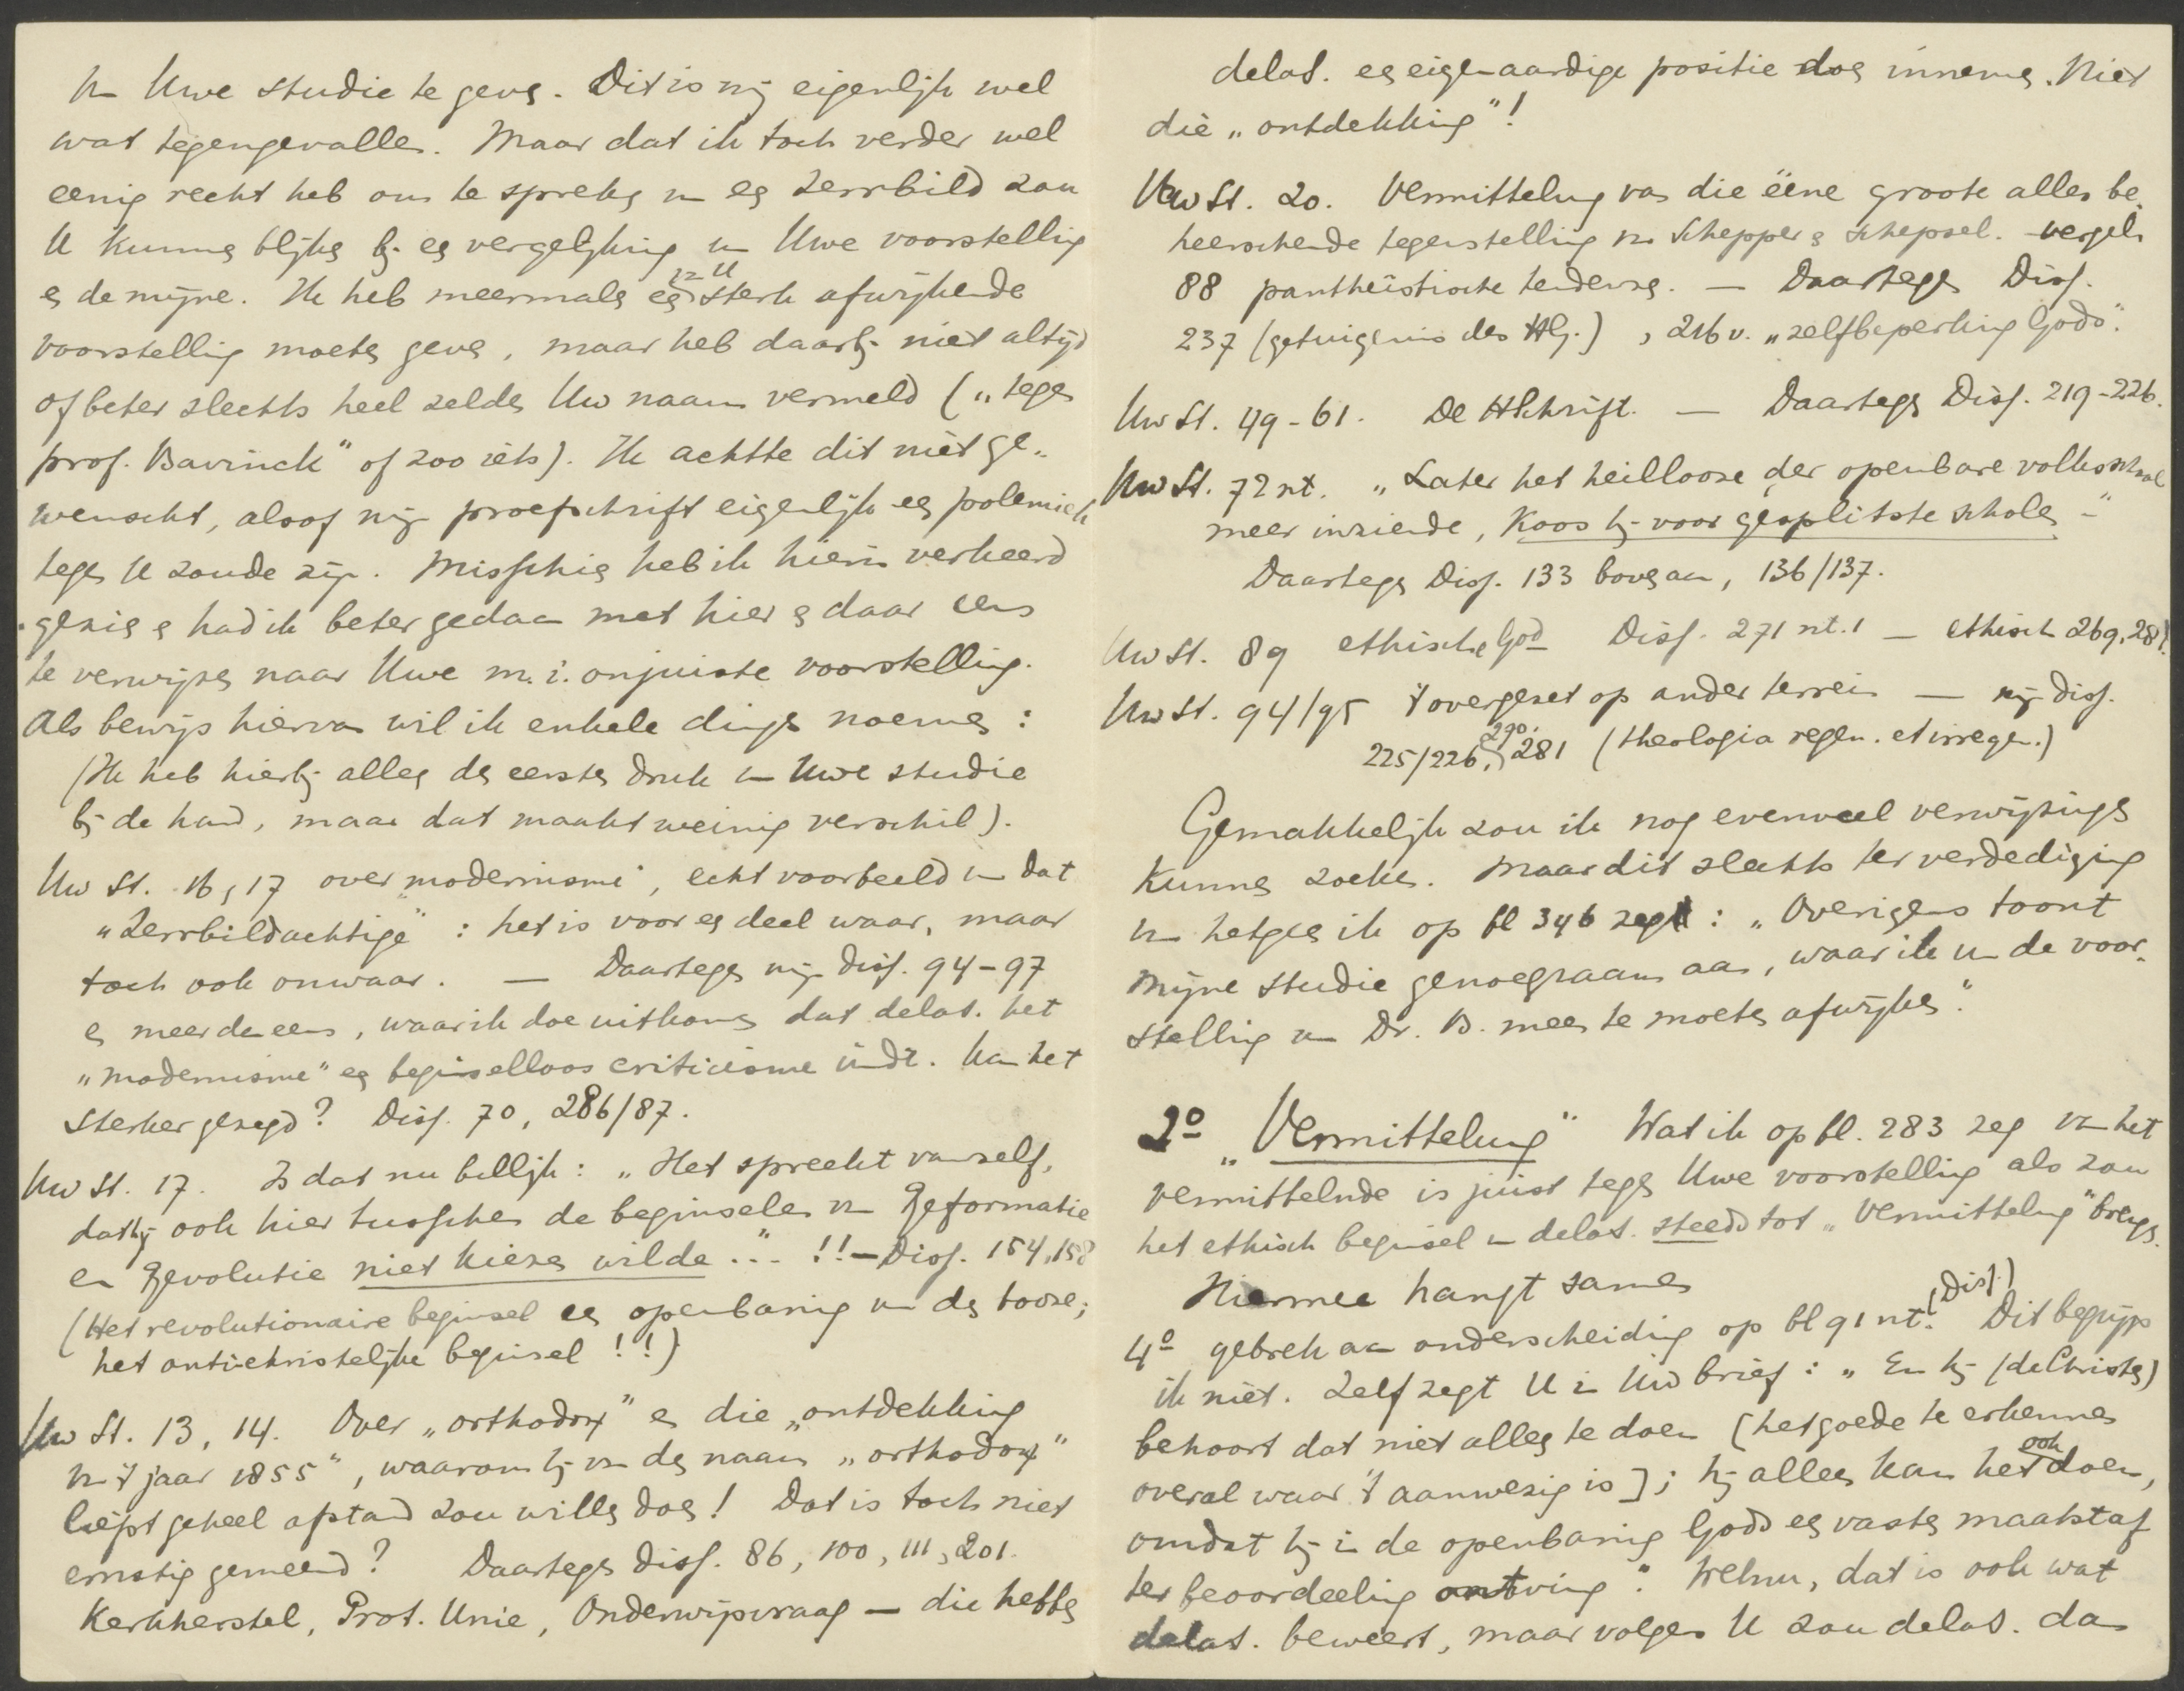 v. Uwe studie te geven. Dit is mij eigenlijk wel
wat tegengevallen. Maar dat ik toch verder wel
eenig recht heb om te spreken v. een Zerrbild zou
U kunnen blijken bij een vergelijking v. Uwe voorstelling
en de mijne. Ik heb meermalen een v. U sterk afwijkende
voorstelling moeten geven, maar heb daarbij niet altijd
of beter slechts heel zelden Uw naam vermeld („tegen
prof. Bavinck" of zoo iets). Ik achtte dit niet ge-
wenscht, alsof mijn proefschrift eigenlijk een polemiek
tegen U zoude zijn. Misschien heb ik hierin verkeerd
gezien en had ik beter gedaan met hier en daar eens
te verwijzen naar Uwe m.i. onjuiste voorstelling.
Als bewijs hiervan wil ik enkele dingen noemen:
(Ik heb hierbij alleen den eersten druk v. Uwe studie
bij de hand, maar dat maakt weinig verschil).
Uw St. 16, 17 over „modernisme", echt voorbeeld v. dat
„Zerrbildachtige": het is voor een deel waar, maar
toch ook onwaar. — Daartegen mijn diss. 94-97
en meer dan eens, waar ik doe uitkomen dat delaS. het
„modernisme" een beginselloos criticisme vindt. Kan het
sterker gezegd? Diss. 70, 286/87.
Uw St. 17. Is dat nu billijk: „Het spreekt vanzelf,
dat hij ook hier tusschen de beginselen v. Reformatie
en Revolutie niet kiezen wilde ..." !! — Diss. 154, 158
(Het revolutionaire beginsel een openbaring v. den booze;
het antichristelijke beginsel!!)
Uw St. 13, 14. Over „orthodox" en die „ontdekking
v. 't jaar 1855", waarom hij v. den naam „orthodox"
liefst geheel afstand zou willen doen! Dat is toch niet
ernstig gemeend? Daartegen diss. 86, 100, 111, 201.
Kerkherstel, Prot. Unie, Onderwijsvraag — die hebben
delaS. een eigenaardige positie doen innemen. Niet
die „ontdekking"!
Uw St. 20. Vermittelung van die ééne groote alles be-
heerschende tegenstelling v. Schepper en schepsel. vergel.
88 pantheïstische tendenzen. — Daartegen Diss.
237 (getuigenis des HG.), 216 v. „zelfbeperking Gods".
Uw St. 49-61. De HSchrift. — Daartegen Diss. 219-226.
Uw St. 72 nt. „Later het heillooze der openbare volksschool
meer inziende, koos hij voor gesplitste scholen —"
Daartegen Diss. 133 bovenaan, 136/137.
Uw St. 89 ethische God — Diss. 271 nt. 1 — ethisch 269, 281.
Uw St. 94/95 't overgezet op ander terrein — mijn diss.
225/226, 290, 281 (theologia regen. et irregen.)
Gemakkelijk zou ik nog evenveel verwijzingen
kunnen zoeken. Maar dit slechts ter verdediging
v. hetgeen ik op bl 346 zeg: „Overigens toont
mijne studie genoegzaam aan, waar ik v. de voor-
stelling v. Dr. B. meen te moeten afwijken".
2º „Vermittelung" Wat ik op bl. 283 zeg v. het
vermittelnde is juist tegen Uwe voorstelling als zou
het ethisch beginsel v. delaS. steeds tot „Vermittelung" brengen.
Hiermee hangt samen
4º gebrek aan onderscheiding op bl 91 nt. (Diss.) Dit begrijp
ik niet. Zelf zegt U in Uw brief: „En hij (de Christen)
behoort dat niet alleen te doen [het goede te erkennen
overal waar 't aanwezig is]; hij alleen kan het ook doen,
omdat hij in de openbaring Gods een vasten maatstaf
ter beoordeeling ontving". Welnu, dat is ook wat
delaS. beweert, maar volgens U zou delaS. dan